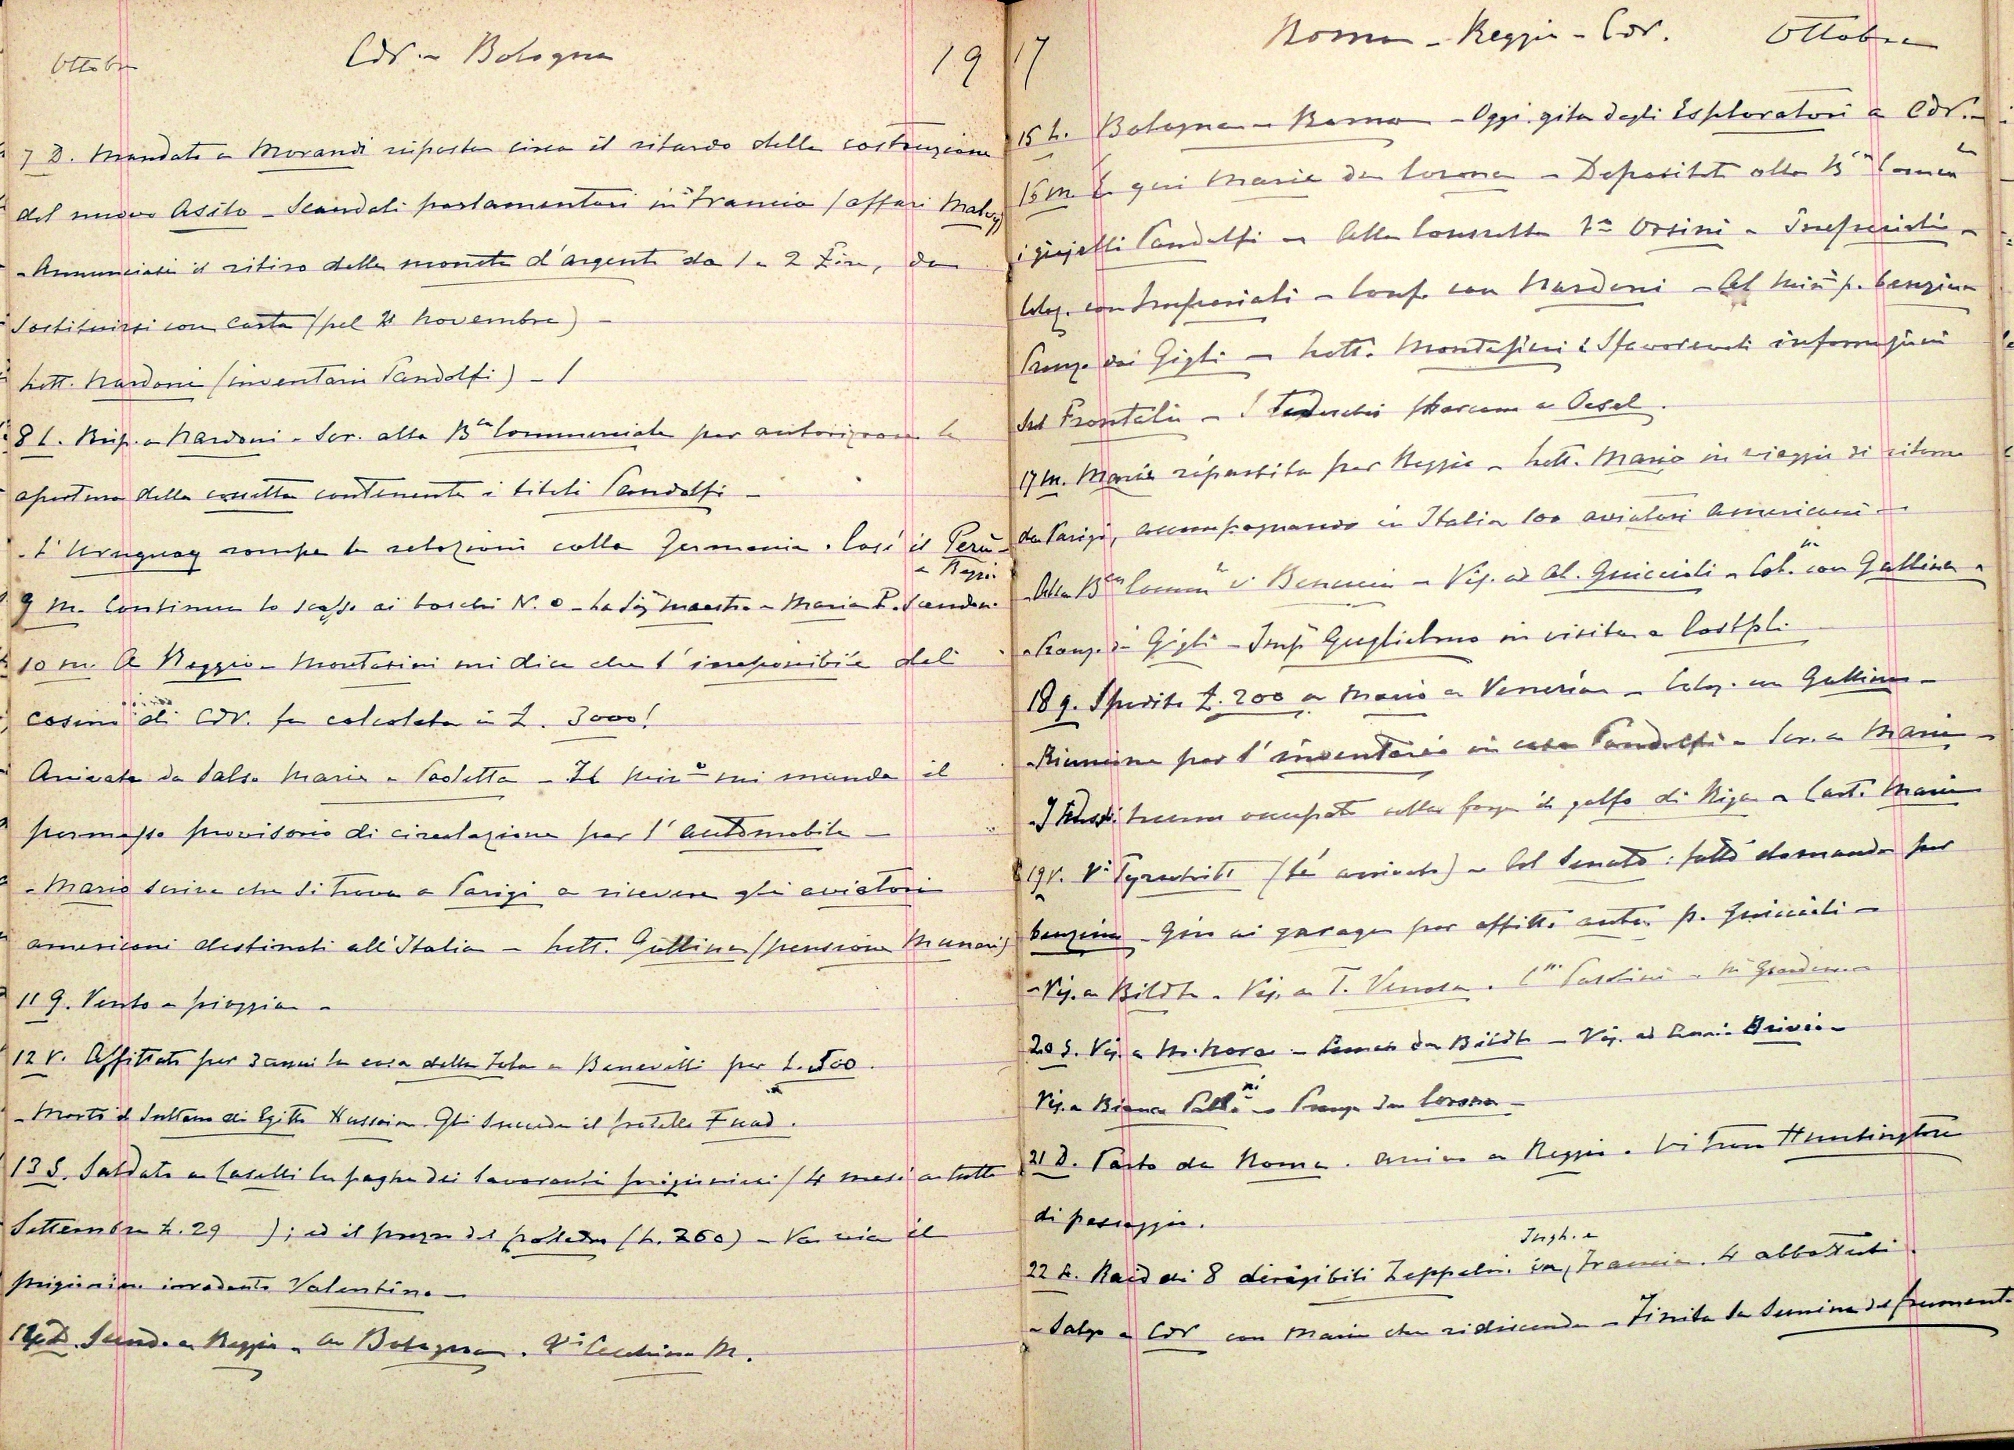 Ottobre Cdr. - Bologna 19
7 D. Mandata a Morandi risposta circa il ritardo della costruzione
del nuovo Asilo - Scandali parlamentari in Francia (affari Malvy)
- Annunciasi il ritiro delle monete d'argento da 1 a 2 Lire, da
sostituirsi con carta (pel 1° novembre) -
Lett. Nardoni (inventario Pandolfi) -
8 L. Risp. a Nardoni - Scr. alla B.ca Commerciale per autorizzare la
apertura della cassetta contenente i titoli Pandolfi -
- L'Uruguay rompe le relazioni colla Germania. Così il Perù -
a Reggio
9 M. Continua lo scasso ai boschi N. 0 - La Sig. maestra - Maria P. Scendon.
10 m. A Reggio - Montasini mi dice che l'imponibile dei
casini di CdV. fu calcolata in L. 3000!
Arrivate da Salso Maria e Paoletta - Il Min.o mi manda il
permesso provvisorio di circolazione per l'automobile -
- Mario scrive che si trova a Parigi a ricevere gli aviatori
americani destinati all'Italia - Lett. Gallina (pensione Munari)
11 G. Vento e pioggia -
12 V. Affittata per 3 anni la casa della Tola a Benevelli per L. 500.
- Morto il Sultano di Egitto Hussein. Gli succede il fratello Fuad.
13 S. Saldato a Caselli la paghe dei lavoranti prigionieri (4 mesi a tutto
Settembre L. 29 ); ed il prezzo del poledro (L. 260) - Va via il
prigioniero irredento Valentino -
14 D. Scendo a Reggio - a Bologna. V.i Cecchino M.
17 Roma - Reggio - Cdr. Ottobre
15 L. Bologna - Roma - Oggi gita degli Esploratori a CdV. -
16 M. È qui Maria da Corona - Depositati alla B.ca Comm.le
i gioielli Pandolfi - Alla Consulta V.i Orsini - Imperiali -
Colaz. con Imperiali - Conf. con Nardoni - Al Min.o p. benzina
Pranzo dai Gigli - Lett. Montasini: sfavorevoli informazioni
sul Frontalin - I Tedeschi sbarcano a Oesel.
17 M. Maria ripartita per Reggio - Lett. Mario in viaggio di ritorno
da Parigi, accompagnando in Italia 100 aviatori americani -
- Alla B.ca Comm.le - Vis. ad Al. Guiccioli - Col.ne con Gallina -
- Pranzo di Gigli - Imp. Guglielmo in visita a Costpli
18 G. Spedite L. 200 a Mario a Venezia - Colaz. con Gallina -
- Riunione per l'inventario in casa Pandolfi - Scr. a Maria -
- I Tedeschi hanno occupato colla forza il golfo di Riga - Cart. Maria
19 V. V.i Tyrwhitt (è arrivato) - Al Senato: fatto domanda per
benzina - Giro ai garages per affitto auto p. Guiccioli -
- Vis. a Bildt - Vis. a T. Venosa.
20 S. Vis. a M. Mara - da Bildt - Vis. ad
Vis. a Bianca - Pranzo da Corona -
21 D. Parto da Roma. Arrivo a Reggio. Vi trovo Huntington
di passaggio.
Ingh. e
22 L. Raid di 8 dirigibili Zeppelin in Francia. 4 abbattuti.
- Salgo a CdV con Maria che ridiscende - Finita la semina del frumento